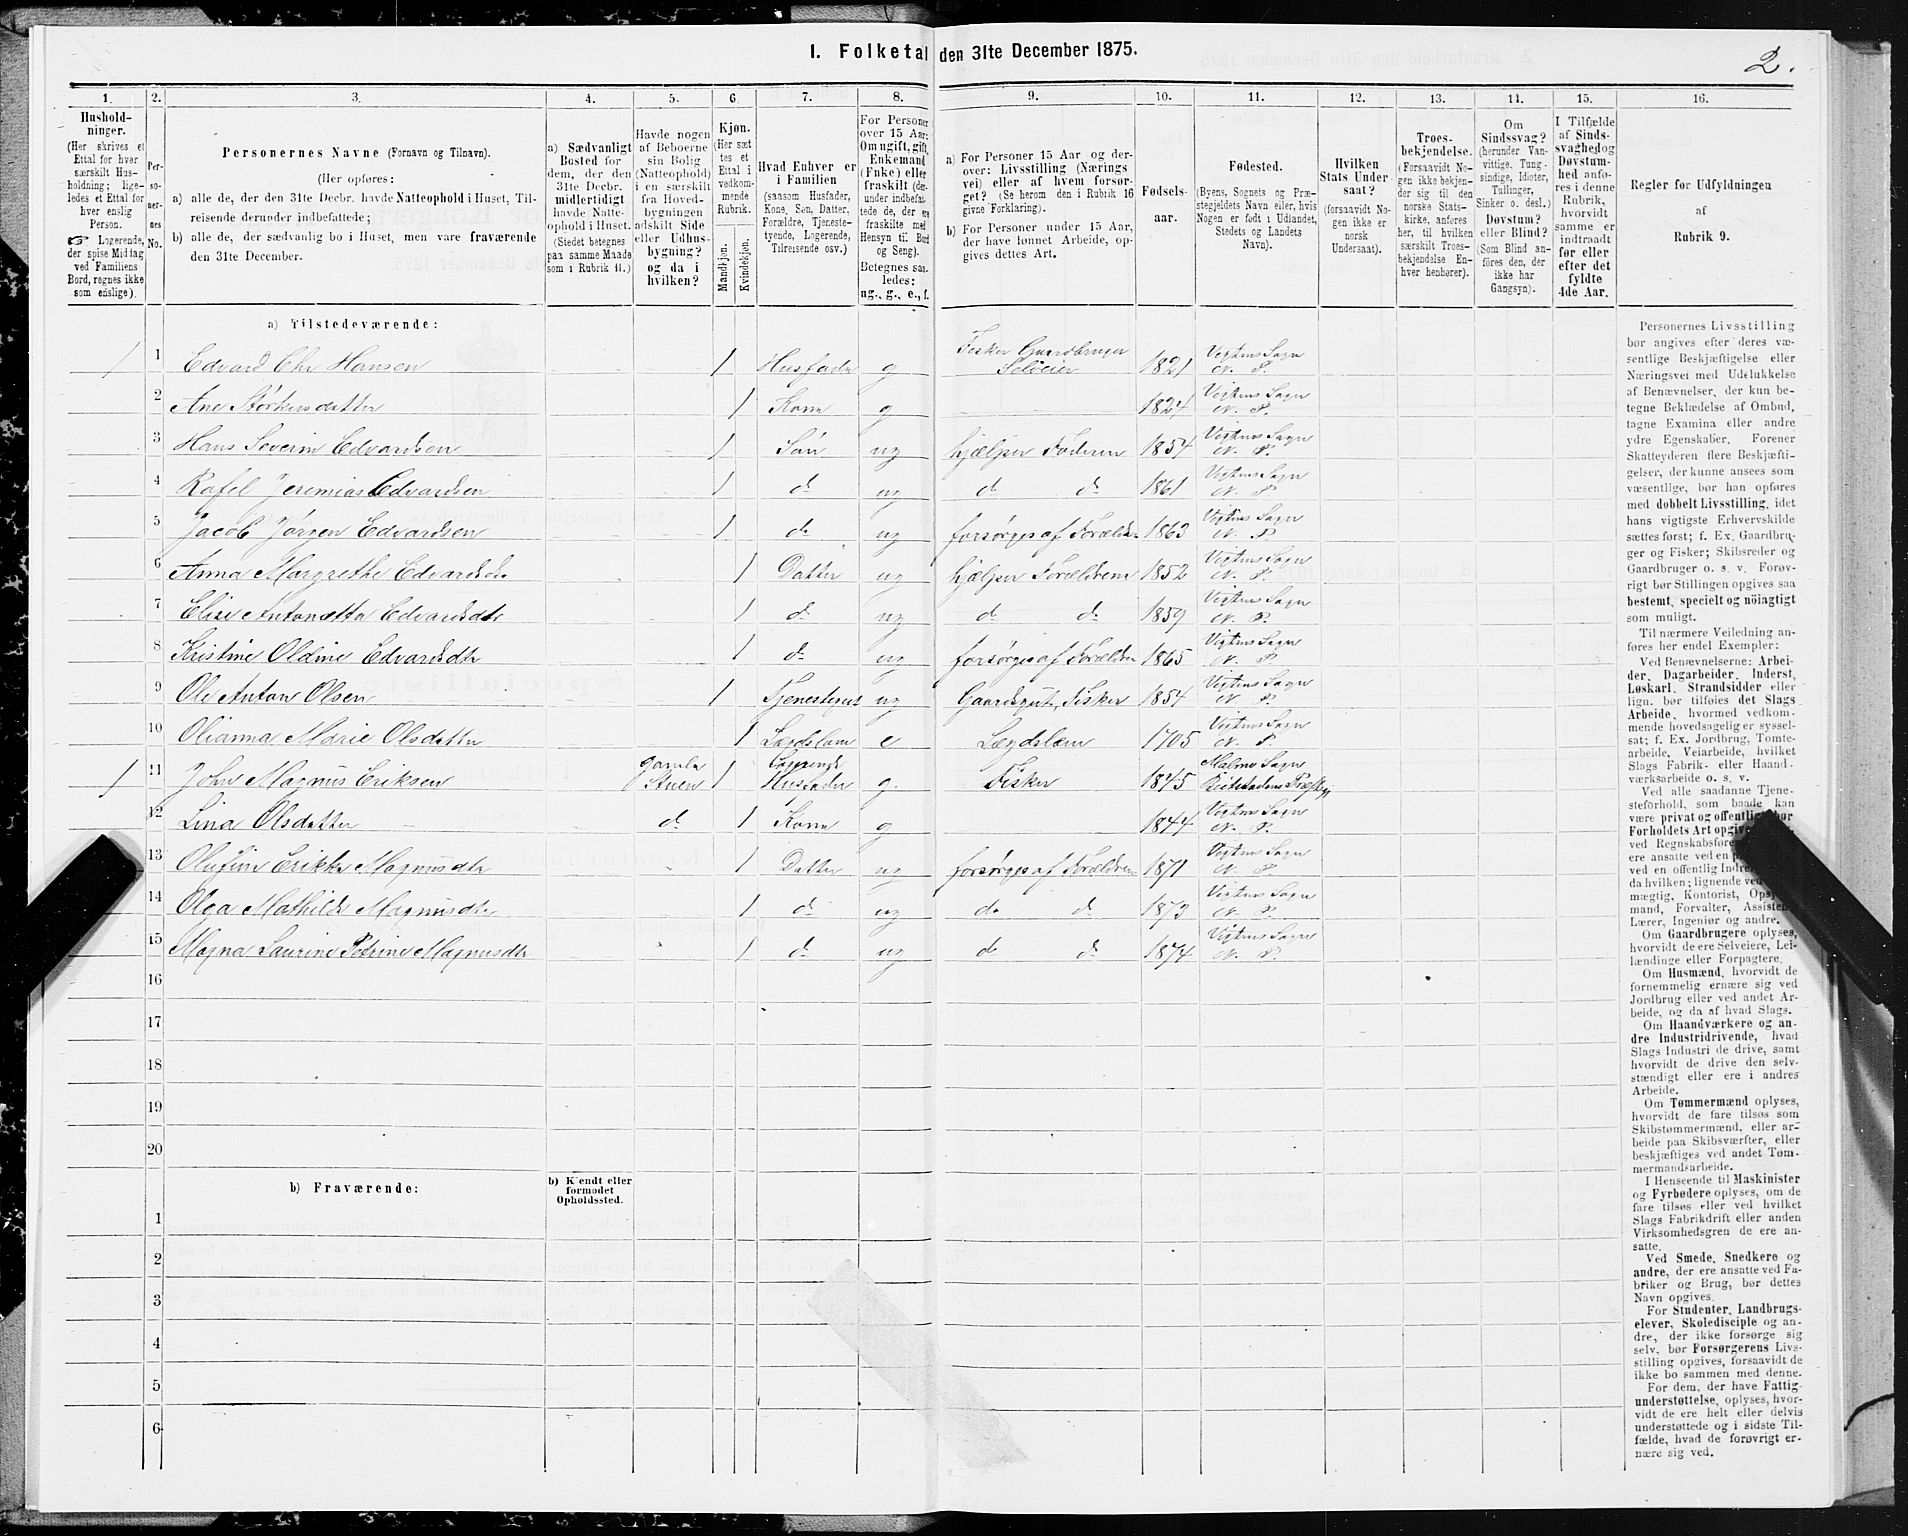 I. Folketal den 31te December 1875.
2.
1. 2. 3. 4. 5. 6. 7. 8. 9. 10. 11. 12. 13. 14. 15. 16.
Hushold-
ninger.
(Her skrives et
Ettal for hver
særskilt Hus-
holdning; lige-
ledes et Ettal for
hver enslig
Person.
☞ Logerende,
der spise Middag
ved Familiens
Bord, regnes ikke
som enslige).
Per-
so-
ner-
nes
No.
Personernes Navne (Fornavn og Tilnavn).
(Her opføres:
a) alle de, der den 31te Decbr. havde Natteophold i Huset, Til-
reisende derunder indbefattede;
b) alle de, der sædvanlig bo i Huset, men vare fraværende
den 31te December.
a) Sædvanligt
Bosted for
dem, der den
31te Decbr.
midlertidigt
havde Natte-
ophold i Huset.
(Stedet betegnes
paa samme Maade
som i Rubrik 11.)
Havde nogen
af Beboerne
sin Bolig
(Natteophold)
i en særskilt
fra Hoved-
bygningen
adskilt Side-
eller Udhus-
bygning?
og da i
hvilken?
Kjøn.
(Her sæt-
tes et
Ettal i
vedkom-
mende
Rubrik.
Mandkjøn.
Kvindekjøn.
Hvad Enhver er
i Familien
(saasom Husfader,
Kone, Søn, Datter,
Forældre, Tjeneste-
tyende, Logerende,
Tilreisende osv.)
For Personer
over 15 Aar:
Om ugift, gift,
Enkemand
(Enke) eller
fraskilt (der-
under indbefat-
tede de, der ere
fraskilte med
Hensyn til Bord
og Seng).
Betegnes saa-
ledes:
ug., g., e., f.
a) For Personer 15 Aar og der-
over: Livsstilling (Nærings-
vei) eller af hvem forsør-
get? (Se herom den i Rubrik 16
givne Forklaring).
b) For Personer under 15 Aar,
der have lønnet Arbeide, op-
gives dettes Art.
Fødsels-
aar.
Fødested.
(Byens, Sognets og Præ-
stegjeldets Navn eller, hvis
Nogen er født i Udlandet,
Stedets og Landets
Navn).
Hvilken
Stats Under-
saat?
(forsaavidt No-
gen ikke er
norsk
Undersaat).
Troes-
bekjendelse.
(Forsaavidt No-
gen ikke bekjen-
der sig til den
norske Stats-
kirke, anføres
her, til hvilken
særskilt Troes-
bekjendelse En-
hver henhører).
Om
Sindssvag?
(herunder Van-
vittige, Tung-
sindige, Idioter,
Tullinger,
Sinker o. desl.)
Døvstum?
eller Blind?
(Som Blind an-
føres den, der
ikke har
Gangsyn).
I Tilfælde
af Sinds-
svaghed og
Døvstum-
hed anfø-
res i denne
Rubrik,
hvorvidt
samme er
indtraadt
før eller
efter det
fyldte
4de Aar.
Regler for Udfyldningen
af
Rubrik 9.
a) Tilstedeværende:
1 1 Edvard Chr Hansen 1 Husfader g Fisker Gaardbruger Seleier 1821 Vigtens Sogn N. P.
2 Ane Størkersdatter 1 Kone g 1824 Vigtens Sogn N. P.
3 Hans Severin Edvardsen 1 Søn ug hjælper Faderen 1854 Vigtens Sogn N. P.
4 Rafel Jeremias Edvardsen 1 do ug do do 1861 Vigtens Sogn N. P.
5 Jacob Jørgen Edvardsen 1 do ug forsørges af Forældre 1863 Vigtens Sogn N. P.
6 Anna Margrethe Edvardsdtr 1 Datter ug hjelper Forældrene 1852 Vigtens Sogn N. P.
7 Elise Antonetta Edvardsdtr 1 do ug do do 1859 Vigtens Sogn N. P.
8 Kristine Oldine Edvardsdtr 1 do ug forsørges af Forældren 1865 Vigtens Sogn N. P.
9 Ole Anton Olsen 1 Tjenestegut ug Gaardsgut, Fisker 1854 Vigtens Sogn N. P.
10 Olianna Marie Olsdatter 1 Lægdslem e Lægdslem 1705 Vigtens Sogn N. P.
1 11 John Magnus Eriksen gamle Stuen 1 Logerende Husfader g. Fisker 1845 Malmo Sogn Beitstadens Præstegj
12 Lina Olsdatter do 1 Kone g 1844 Vigtens Sogn N. P.
13 Olufine Erikka Magnusdtr 1 Datter ug forsørges af Forældrene 1871 Vigtens Sogn N. P.
14 Olga Mathilde Magnusdtr 1 do ug do do 1873 Vigtens Sogn N. P.
15 Magna Laurine Petrine Magnusdtr 1 do ug do do 1874 Vigtens Sogn N. P.
16
17
18
19
20
b) Fraværende:
b) Kjendt eller
formodet
Opholdssted.
1
2
3
4
5
6
Personernes Livsstilling
bør angives efter deres væ-
sentlige Beskjæftigelse eller
Næringsvei med Udelukkelse
af Benævnelser, der kun be-
tegne Beklædelse af Ombud,
tagne Examina eller andre
ydre Egenskaber. Forener
Skatteyderen flere Beskjæfti-
gelser, der kunne ansees som
væsentlige, bør han opføres
med dobbelt Livsstilling, idet
hans vigtigste Erhvervskilde
sættes først; f. Ex. Gaardbru-
ger og Fisker; Skibsreder og
Gaardbruger o. s. v. Forøv-
rigt bør Stillingen opgives saa
bestemt, specielt og nöiagtigt
som muligt.
Til nærmere Veiledning an-
føres her endel Exempler:
Ved Benævnelserne: Arbei-
der, Dagarbeider, Inderst,
Løskarl, Strandsidder eller
lign. bør tilføies det Slags
Arbeide, hvormed vedkom-
mende hovedsagelig er syssel-
sat; f. Ex. Jordbrug, Tomte-
arbeide, Veiarbeide, hvilket
Slags Fabrik- eller Haand-
værksarbeide o. s. v.
Ved alle saadanne Tjene-
steforhold, som baade kan
være privat og offentligt, bør
Forholdets Art opgives
ved Regnskabsføre
ere ansatte ved en
ved en offentlig Indre
da hvilken; lignende ved
mægtig, Kontorist, Opsy
mand, Forvalter, Assistent,
Lærer, Ingeniør og andre.
Om Gaardbrugere oplyses,
hvorvidt de ere Selveiere, Lei-
lændinge eller Forpagtere.
Om Husmænd, hvorvidt de
fornemmelig ernære sig ved
Jordbrug eller ved andet Ar-
beide, og da af hvad Slags.
Om Haandværkere og an-
dre Industridrivende, hvad
Slags Industri de drive, samt
hvorvidt de drive den selv-
stændigt eller ere i andres
Arbeide.
Om Tømmermænd oplyses,
hvorvidt de fare tilsøs som
Skibstømmermænd, eller ar-
beide paa Skibsværfter, eller
beskjæftiges ved andet Tøm-
mermandsarbeide.
I Henseende til Maskinister
og Fyrbødere oplyses, om de
fare tilsøs eller ved hvilket
Slags Fabrikdrift eller anden
Virksomhedsgren de ere an-
satte.
Ved Smede, Snedkere og
andre, der ere ansatte ved Fa-
briker og Brug, bør dettes
Navn opgives.
For Studenter, Landbrugs-
elever, Skoledisciple og an-
dre, der ikke forsørge sig
selv, bør Forsørgerens Livs-
stilling opgives, forsaavidt de
ikke bo sammen med denne.
For dem, der have Fattig-
understøttelse, oplyses, hvor-
vidt de ere helt eller delvis
understøttede og i sidste Til-
fælde, hvad de forøvrigt er-
nære sig ved.